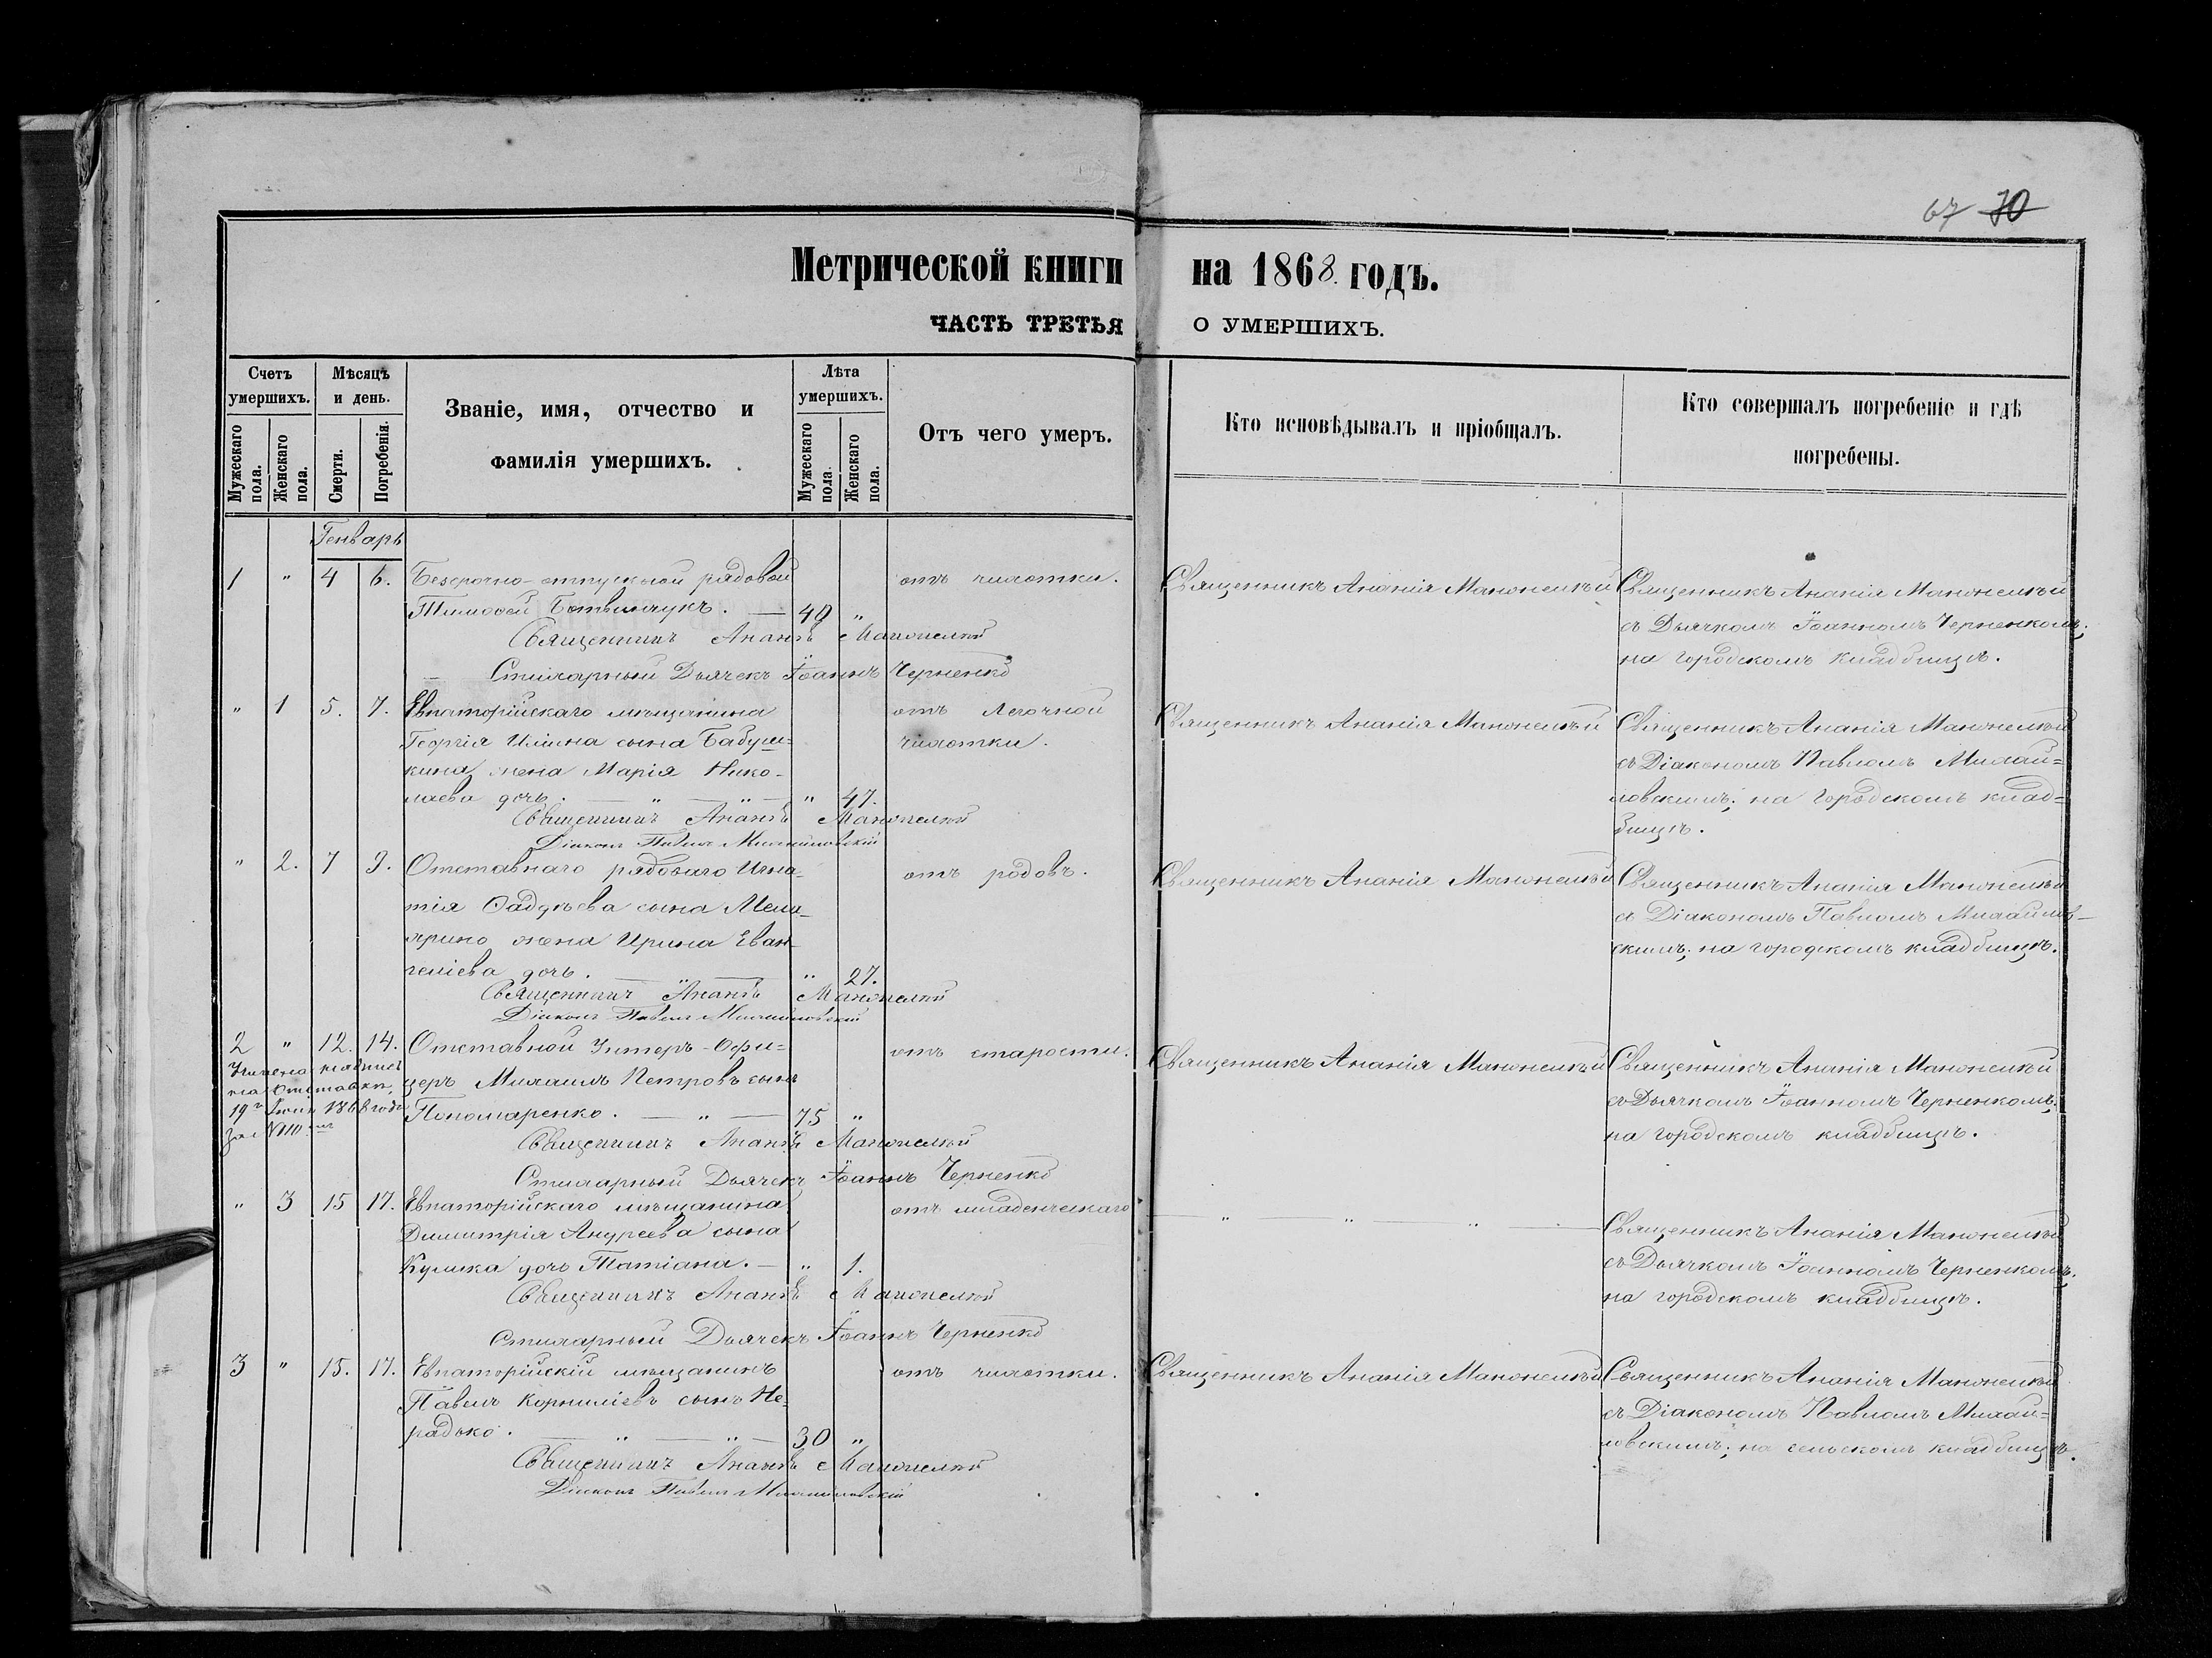 67 70
Метрической книги на 1868. годъ.
ЧАСТЬ ТРЕТЬЯ О УМЕРШИХЪ.
Счетъ умершихъ.
Мужескаго пола.
Женскаго пола.
Мѣсяцъ и день.
Смерти.
Погребенія.
Званіе, имя, отчество и фамилія умершихъ.
Лѣта умершихъ.
Мужескаго пола.
Женскаго пола.
Отъ чего умеръ.
Кто исповѣдывалъ и пріобщалъ.
Кто совершалъ погребеніе и гдѣ погребены.
Генварь
1 " 4 6. Безсрочно-отпускной рядовой
Тимофей Ботвинчукъ. — 40 "
отъ чахотки.
Священникъ Ананія Манонецкій
Священникъ Ананія Манонецкій
съ Дьячкомъ Іоанномъ Черненкомъ;
на городскомъ кладбищѣ.
Священникъ Ананія Манонецкій
Стихарный Дьячекъ Іоаннъ Черненко
" 1 5. 7. Евпаторійскаго мѣщанина
Георгія Ильина сына Бабуш-
кина жена Марія Нико-
лаева дочь. — " — " — " 47.
отъ легочной
чахотки.
Священникъ Ананія Манонецкій
Священникъ Ананія Манонецкій
съ Діакономъ Павломъ Михай-
ловскимъ; на городскомъ клад-
бищѣ.
Священникъ Ананія Манонецкій
Діаконъ Павелъ Михайловскій
" 2. 7 9. Отставнаго рядоваго Игна-
тія Фадѣева сына
жена Ирина Еван-
геліева дочь. — " — " 27.
отъ родовъ.
Священникъ Ананія Манонецкій
Священникъ Ананія Манонецкій
съ Діакономъ Павломъ Михайлов-
скимъ; на городскомъ кладбищѣ.
Священникъ Ананія Манонецкій
Діаконъ Павелъ Михайловскій
2 " 12. 14. Отставной Унтеръ-Офи-
церъ Михаилъ Петровъ сынъ
Пономаренко. — " — 75 "
надпись
на отставкѣ,
19го 1868 года
за №110
отъ старости.
Священникъ Ананія Манонецкій
Священникъ Ананія Манонецкій
съ Дьячкомъ Іоанномъ Черненкомъ;
на городскомъ кладбищѣ.
Священникъ Ананія Манонецкій
Стихарный Дьячекъ Іоаннъ Черненко
" 3 15 17. Евпаторійскаго мѣщанина
Димитрія Андреева сына
Кулика дочь Татіана. — " 1.
отъ младенческаго
— " — " — " —
Священникъ Ананія Манонецкій
съ Дьячкомъ Іоанномъ Черненкомъ;
на городскомъ кладбищѣ.
Священникъ Ананія Манонецкій
Стихарный Дьячекъ Іоаннъ Черненко
3 " 15. 17. Евпаторійскій мѣщанинъ
Павелъ Корниліевъ сынъ Не-
радько. — " — " — 30 "
отъ чахотки.
Священникъ Ананія Манонецкій
Священникъ Ананія Манонецкій
съ Діакономъ Павломъ Михай-
ловскимъ; на сельскомъ кладбищѣ.
Священникъ Ананія Манонецкій
Діаконъ Павелъ Михайловскій